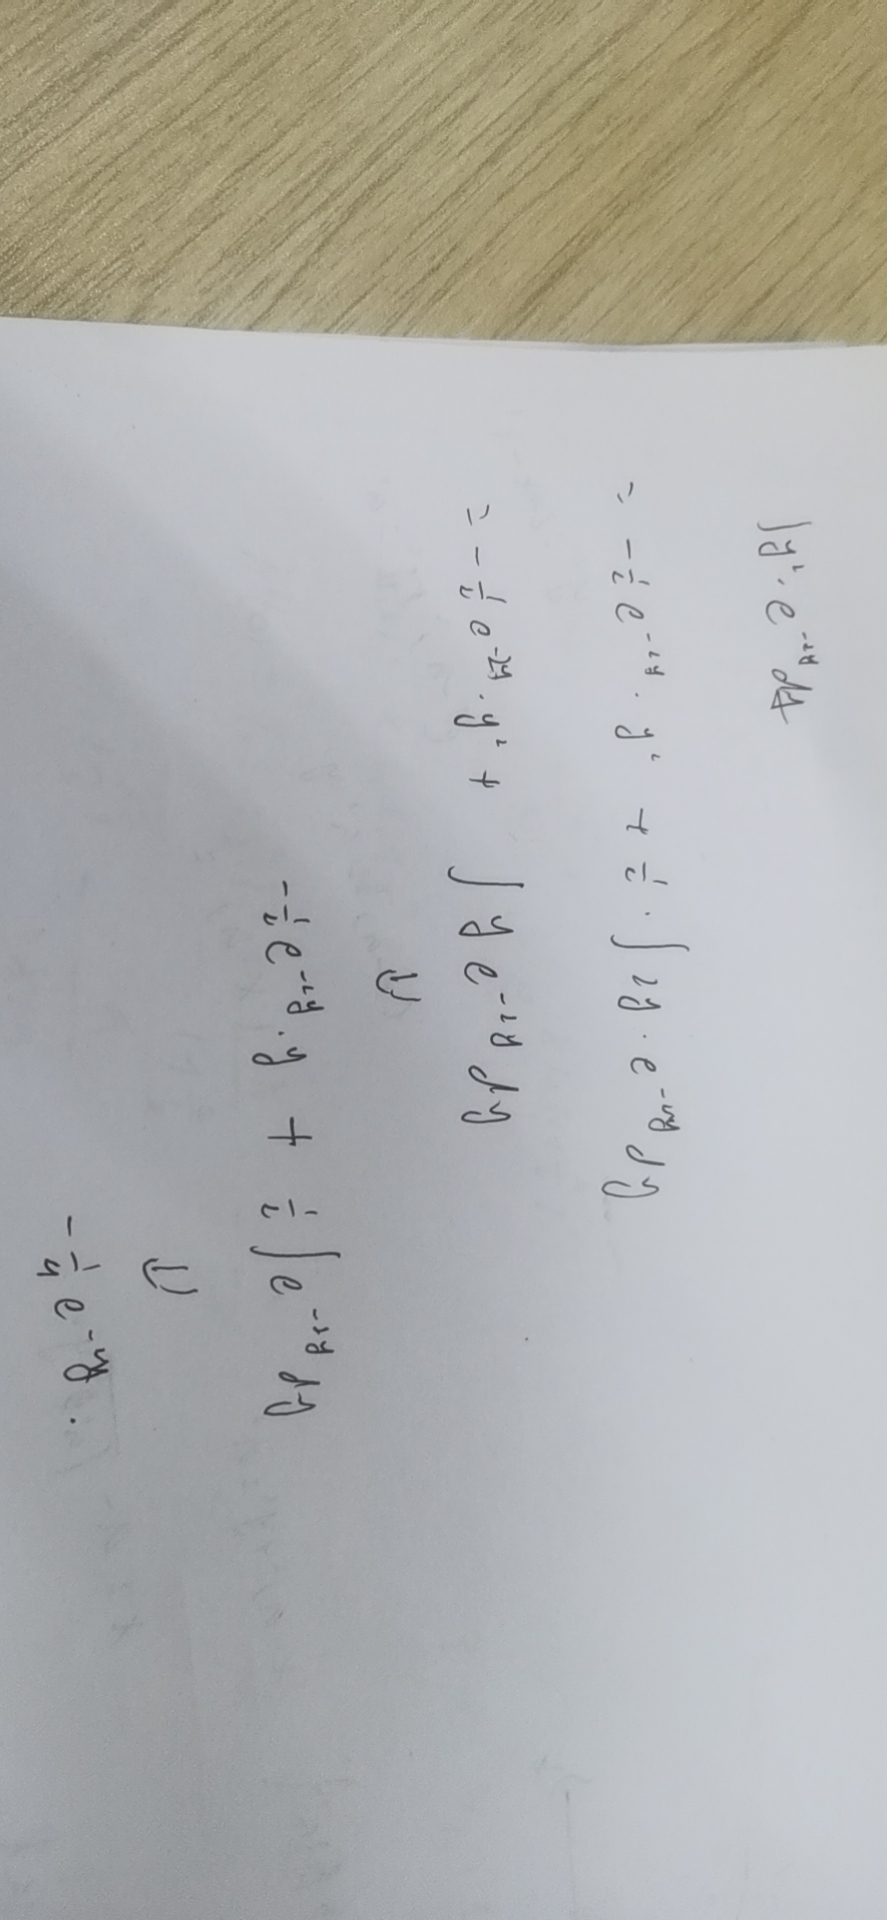 ∫y²·e⁻²ʸdy
= -½e⁻²ʸ·y² + ½·∫2y·e⁻²ʸdy
= -½e⁻²ʸ·y² + ∫ye⁻²ʸdy
⇓
-½e⁻²ʸ·y + ½∫e⁻²ʸdy
⇓
-¼e⁻²ʸ.